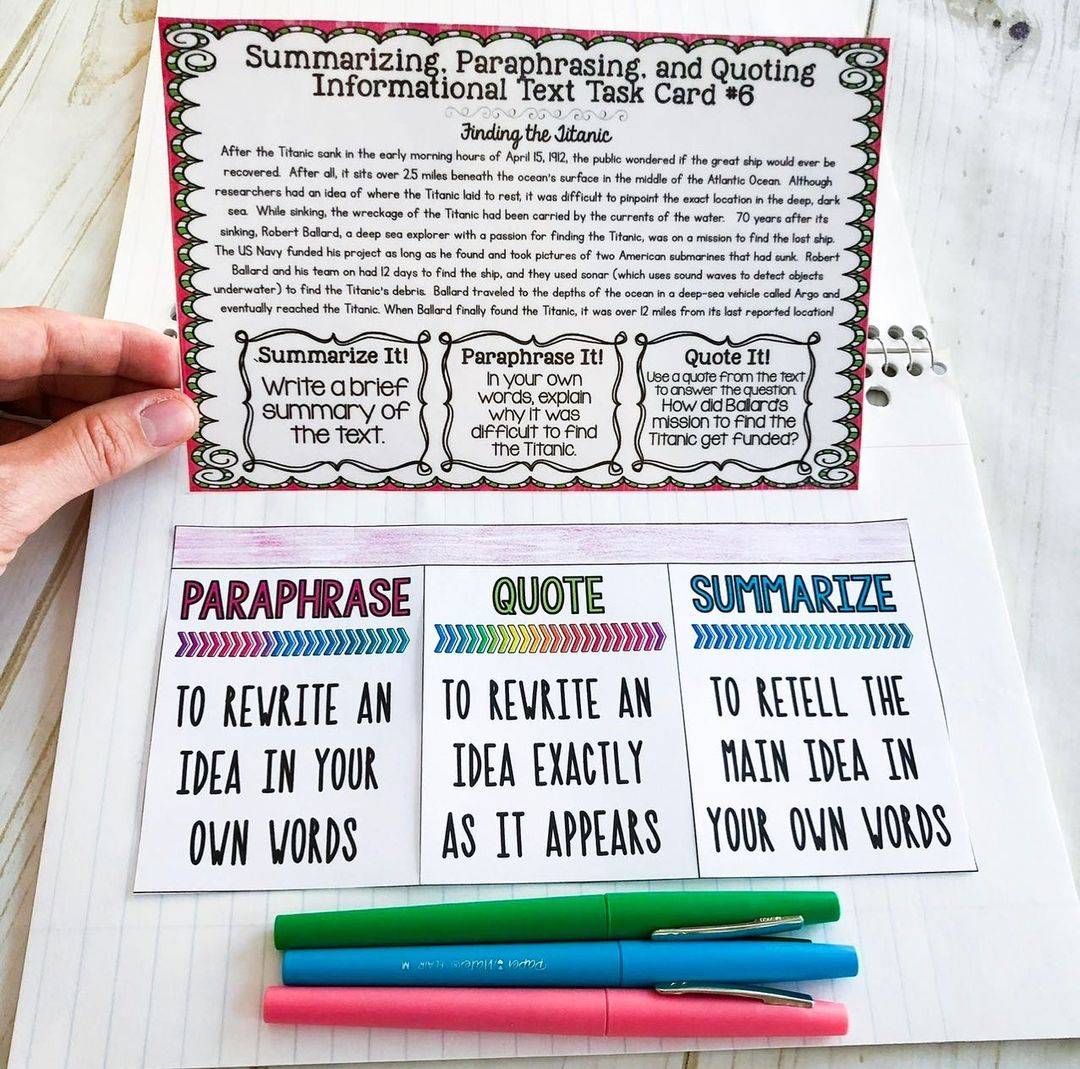 Summarizing, Paraphrasing, and Quoting
Informational Text Task Card #6
Finding the Titanic
After the Titanic sank in the early morning hours of April 15, 1912, the public wondered if the great ship would ever be
recovered. After all, it sits over 2.5 miles beneath the ocean's surface in the middle of the Atlantic Ocean. Although
researchers had an idea of where the Titanic laid to rest, it was difficult to pinpoint the exact location in the deep, dark
sea. While sinking, the wreckage of the Titanic had been carried by the currents of the water. 70 years after its
sinking, Robert Ballard, a deep sea explorer with a passion for finding the Titanic, was on a mission to find the lost ship.
The US Navy funded his project as long as he found and took pictures of two American submarines that had sunk. Robert
Ballard and his team on had 12 days to find the ship, and they used sonar (which uses sound waves to detect objects
underwater) to find the Titanic's debris. Ballard traveled to the depths of the ocean in a deep-sea vehicle called Argo and
eventually reached the Titanic. When Ballard finally found the Titanic, it was over 12 miles from its last reported location!
Summarize It!
Write a brief
summary of
the text.
Paraphrase It!
In your own
words, explain
why it was
difficult to find
the Titanic.
Quote It!
Use a quote from the text
to answer the question.
How did Ballard's
mission to find the
Titanic get funded?
PARAPHRASE
TO REWRITE AN
IDEA IN YOUR
OWN WORDS
QUOTE
TO REWRITE AN
IDEA EXACTLY
AS IT APPEARS
SUMMARIZE
TO RETELL THE
MAIN IDEA IN
YOUR OWN WORDS
Paper Mate FLAIR M